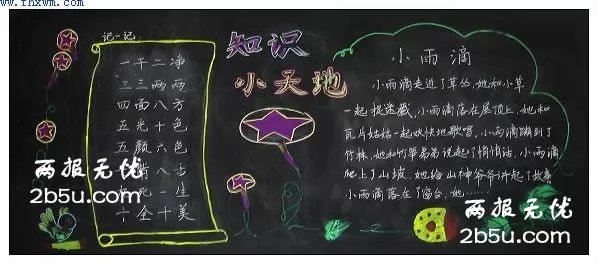 记一记:
一干二净
三三两两
四面八方
五光十色
五颜六色
八步
死一生
十全十美
两报无优
2b5u.com
知识
小天地
小雨滴
小雨滴走进了草丛,她和小草
一起捉迷藏,小雨滴落在屋顶上,她和
瓦片姑姑一起欢快地歌唱,小雨滴蹦到了
竹林,她和竹笋弟弟说起了悄悄话,小雨滴
爬上了山坡,她给山神爷爷讲起了故事
小雨滴落在了窗台,她……
两报无优
2b5u.com